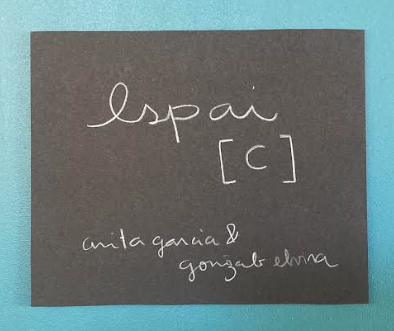 espai
[C]
anita garcia &
gonzalo elvira